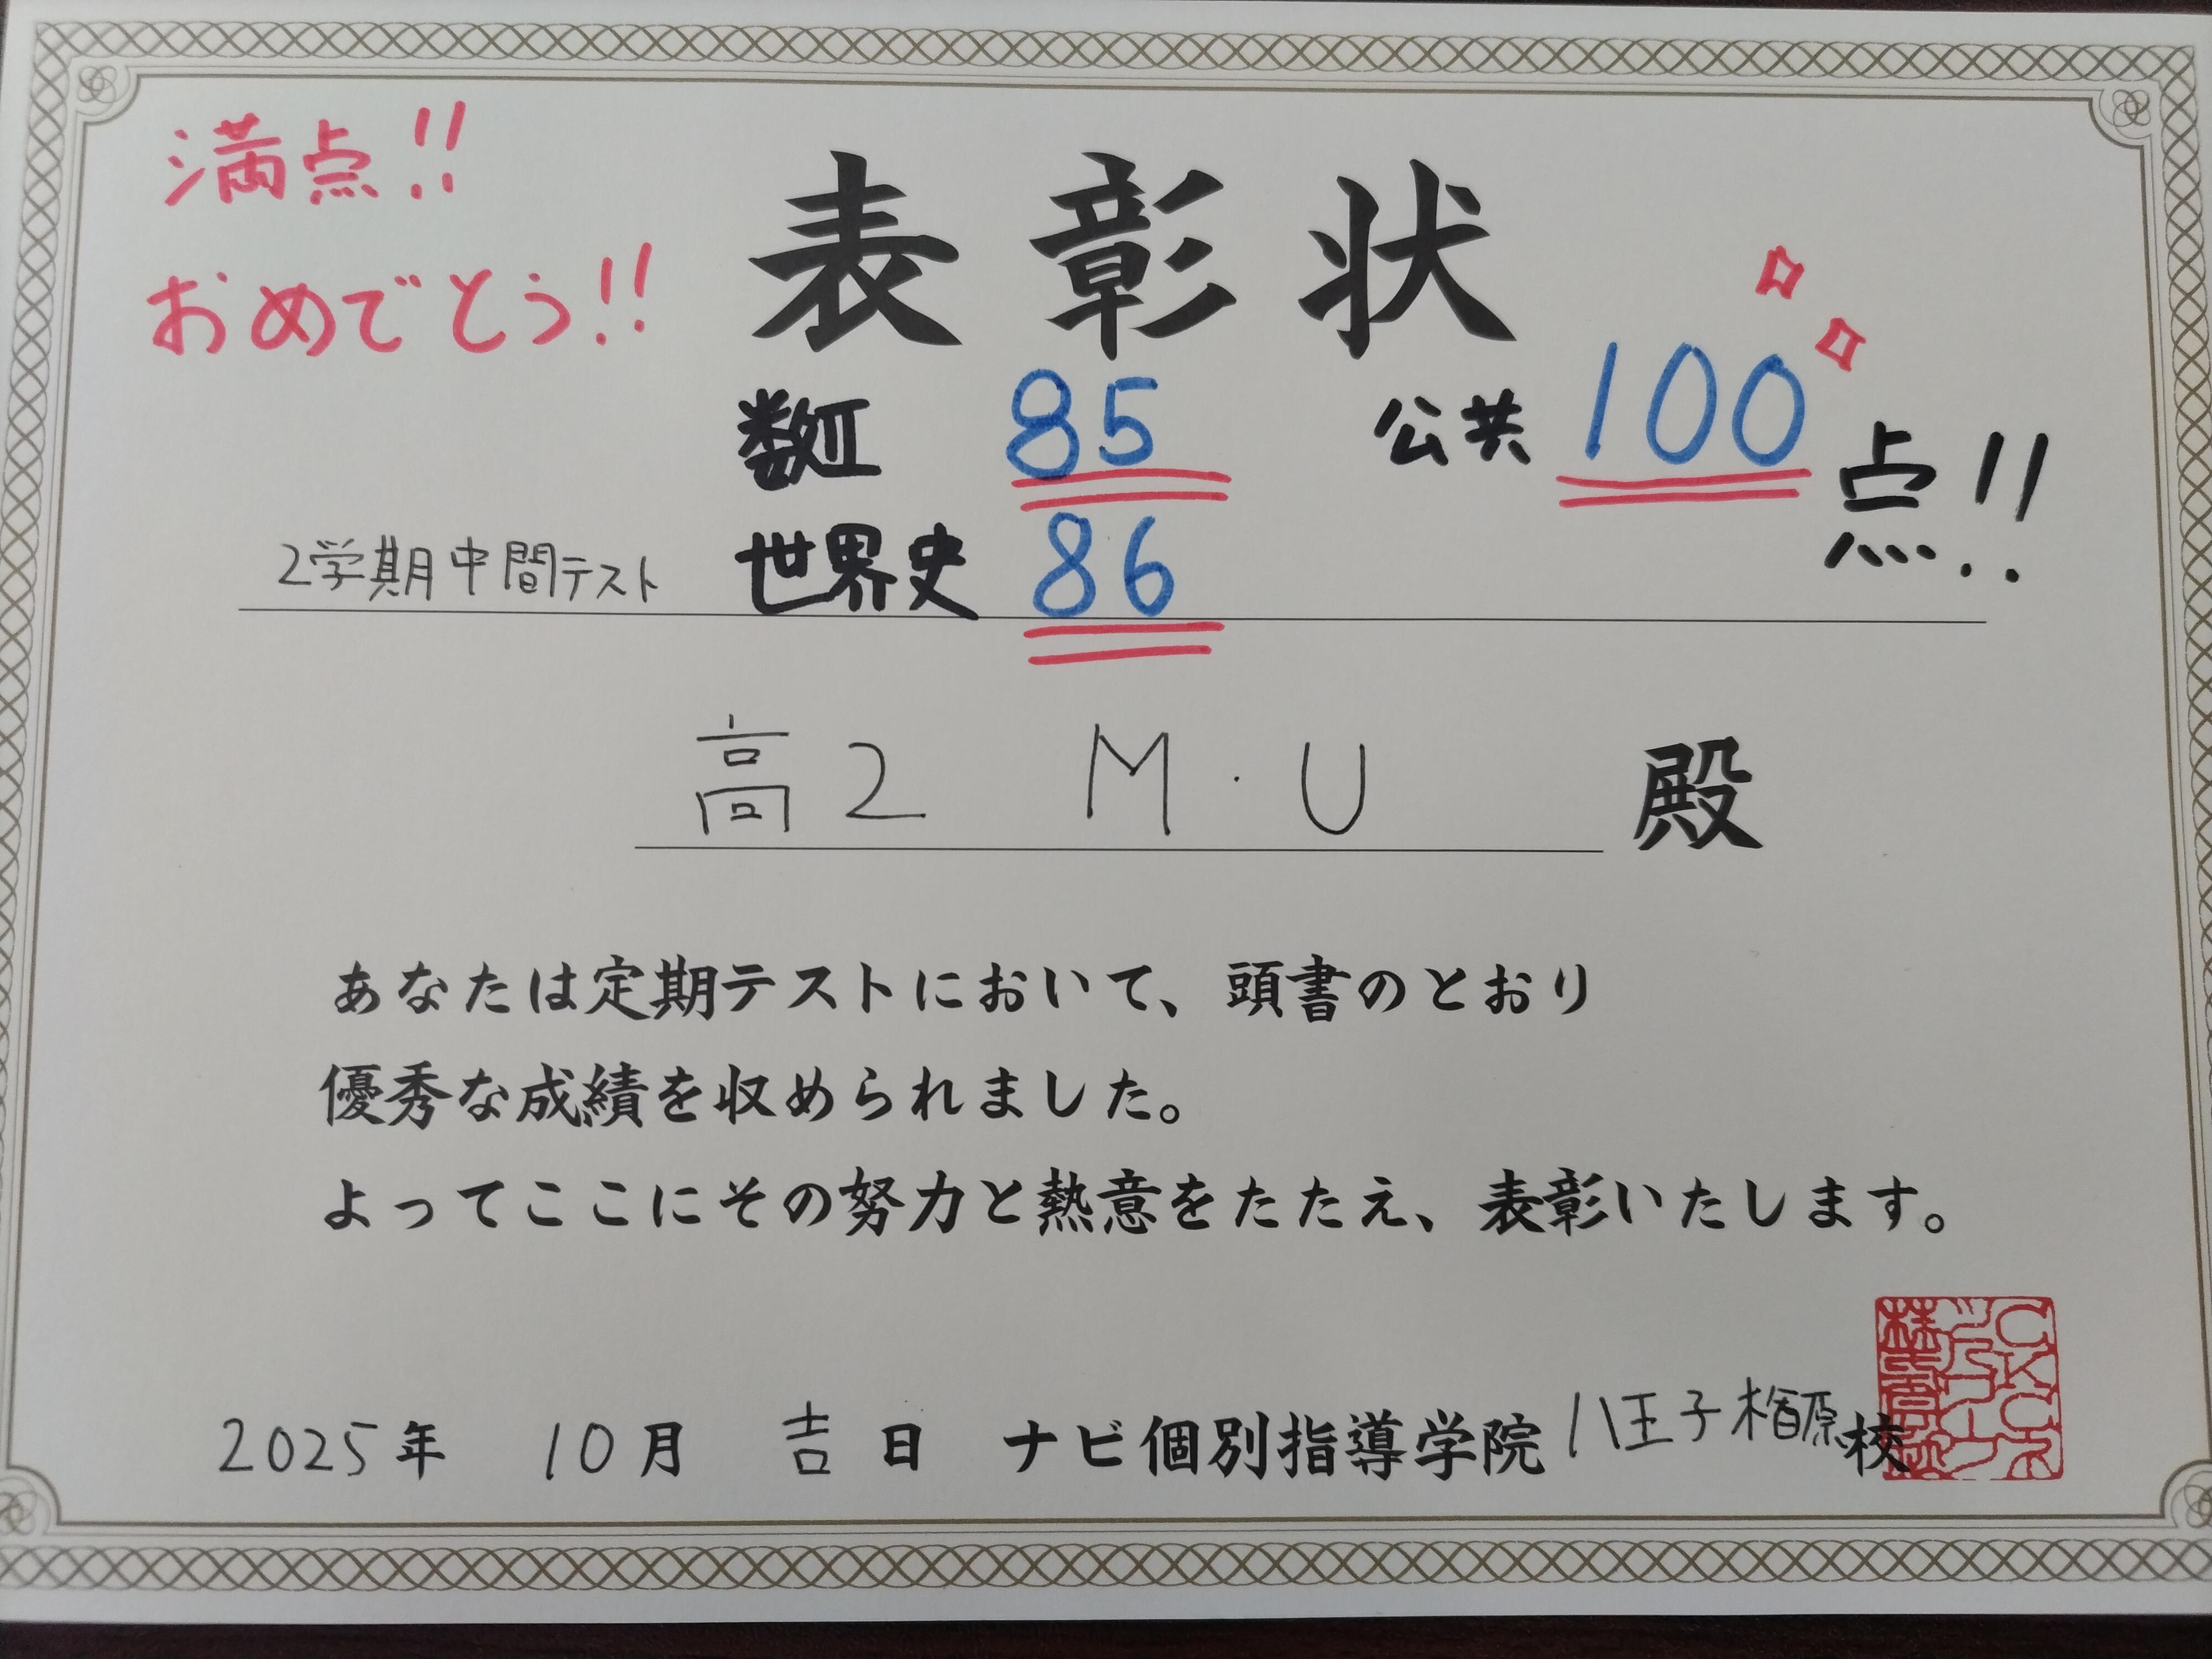 満点!!
おめでとう!!
表彰状
数II 85 公共 100点!!
2学期中間テスト 世界史 86
高2 M・U 殿
あなたは定期テストにおいて、頭書のとおり
優秀な成績を収められました。
よってここにその努力と熱意をたたえ、表彰いたします。
2025年 10月 吉日 ナビ個別指導学院 八王子楢原校